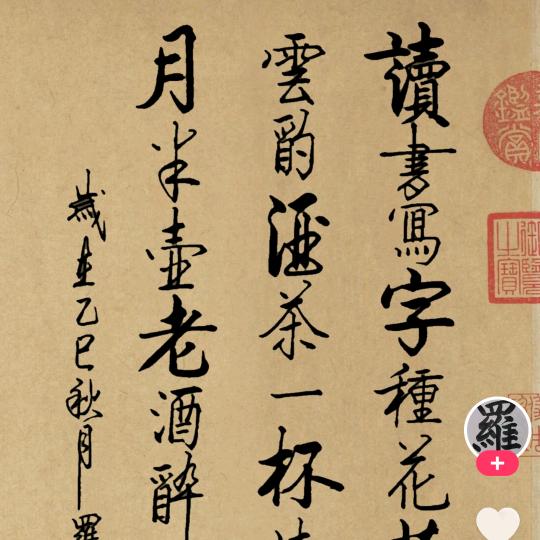 讀書寫字種花
雲酌酒茶一杯
月半壺老酒醉
歲在乙巳秋月羅
鑑賞
羅